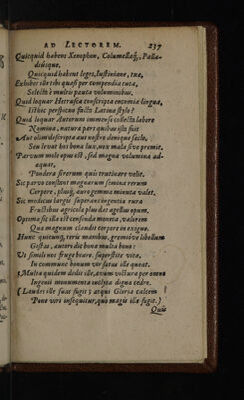 AD LECTOREM. 237
Quicquid habens Xenophon, Columellaq́;, Palla-
diusque,
Quicquid habent leges, Iustiniane, tuæ,
Exhibet ille tibi quasi per compendia cuncta,
Selectè è multis pauca voluminibus.
Quid loquar Hetrusca conscripta encomia lingua,
Isthic perspicuo facta Latina stylo?
Quid loquar Autorum immenso collecta labore
Nomina, natura part quibus ista fuit
Aut olim descripta aut nostro denique seclo,
Seu levat hos bona lux, nox mala sive premit.
Parvum mole opus est, sed magna volumina ad-
æquat,
Pondera si rerum quis trutinare velit.
Sic parvo constant magnarum semina rerum
Corpore, plusq́; auro gemma minuta valet.
Sic medicus largis superat ingentia rura
Fructibus agricolæ plus dat agellus opum,
Optima sic illa est censenda moneta, valorem
Quæ magnum claudit corpore in exiguo.
Hunc quicunq, teris manibus, gremióve libellum
Gestas, autori dic bona multa bono:
Ut simili nec fruge beare superstite vita,
In commune bonum versatus ille queat.
(Multa quidem dedit ille, ævum victura per omne
Ingenii monumenta inclyta digna cedro.
(Laudes ille suas fugit; atqui Gloria calcem
Pone viri insequitur, quò magis ille fugit.)
Quis